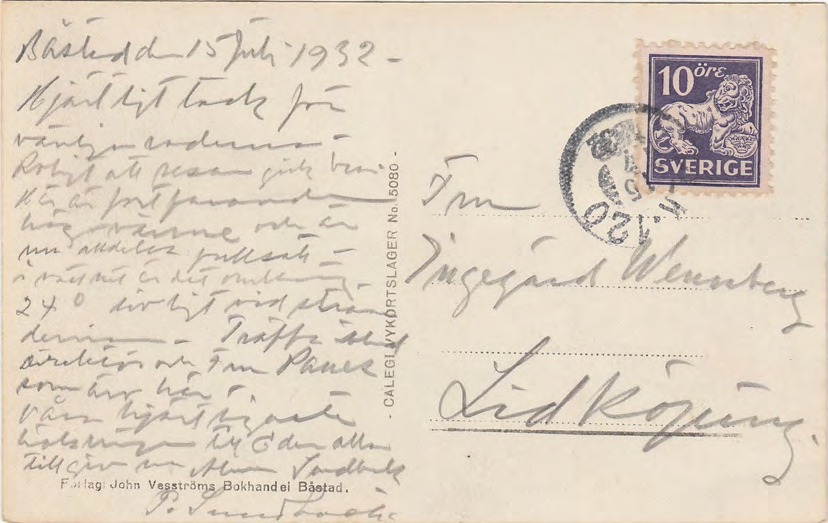 Båstad den 15 Juli 1932 -
Hjärtligt tack för
vänliga raderna -
Roligt att resan gick bra.
Här är fortfarande
hög värme och är
nu alldeles fullsatt -
i vattnet är det omkring
24° livligt vid stran
derna - Träffa
direktör och Fru
som äro här.
Våra hjärtligaste
hälsningar till Eder alla
tillgivna
P.
Förlag: John Vesströms Bokhandel Båstad.
- CALEGI VYKORTSLAGER No. 5080 -
10 öre
SVERIGE
120
15
Fru
Ingegärd Wennberg
Lidköping.